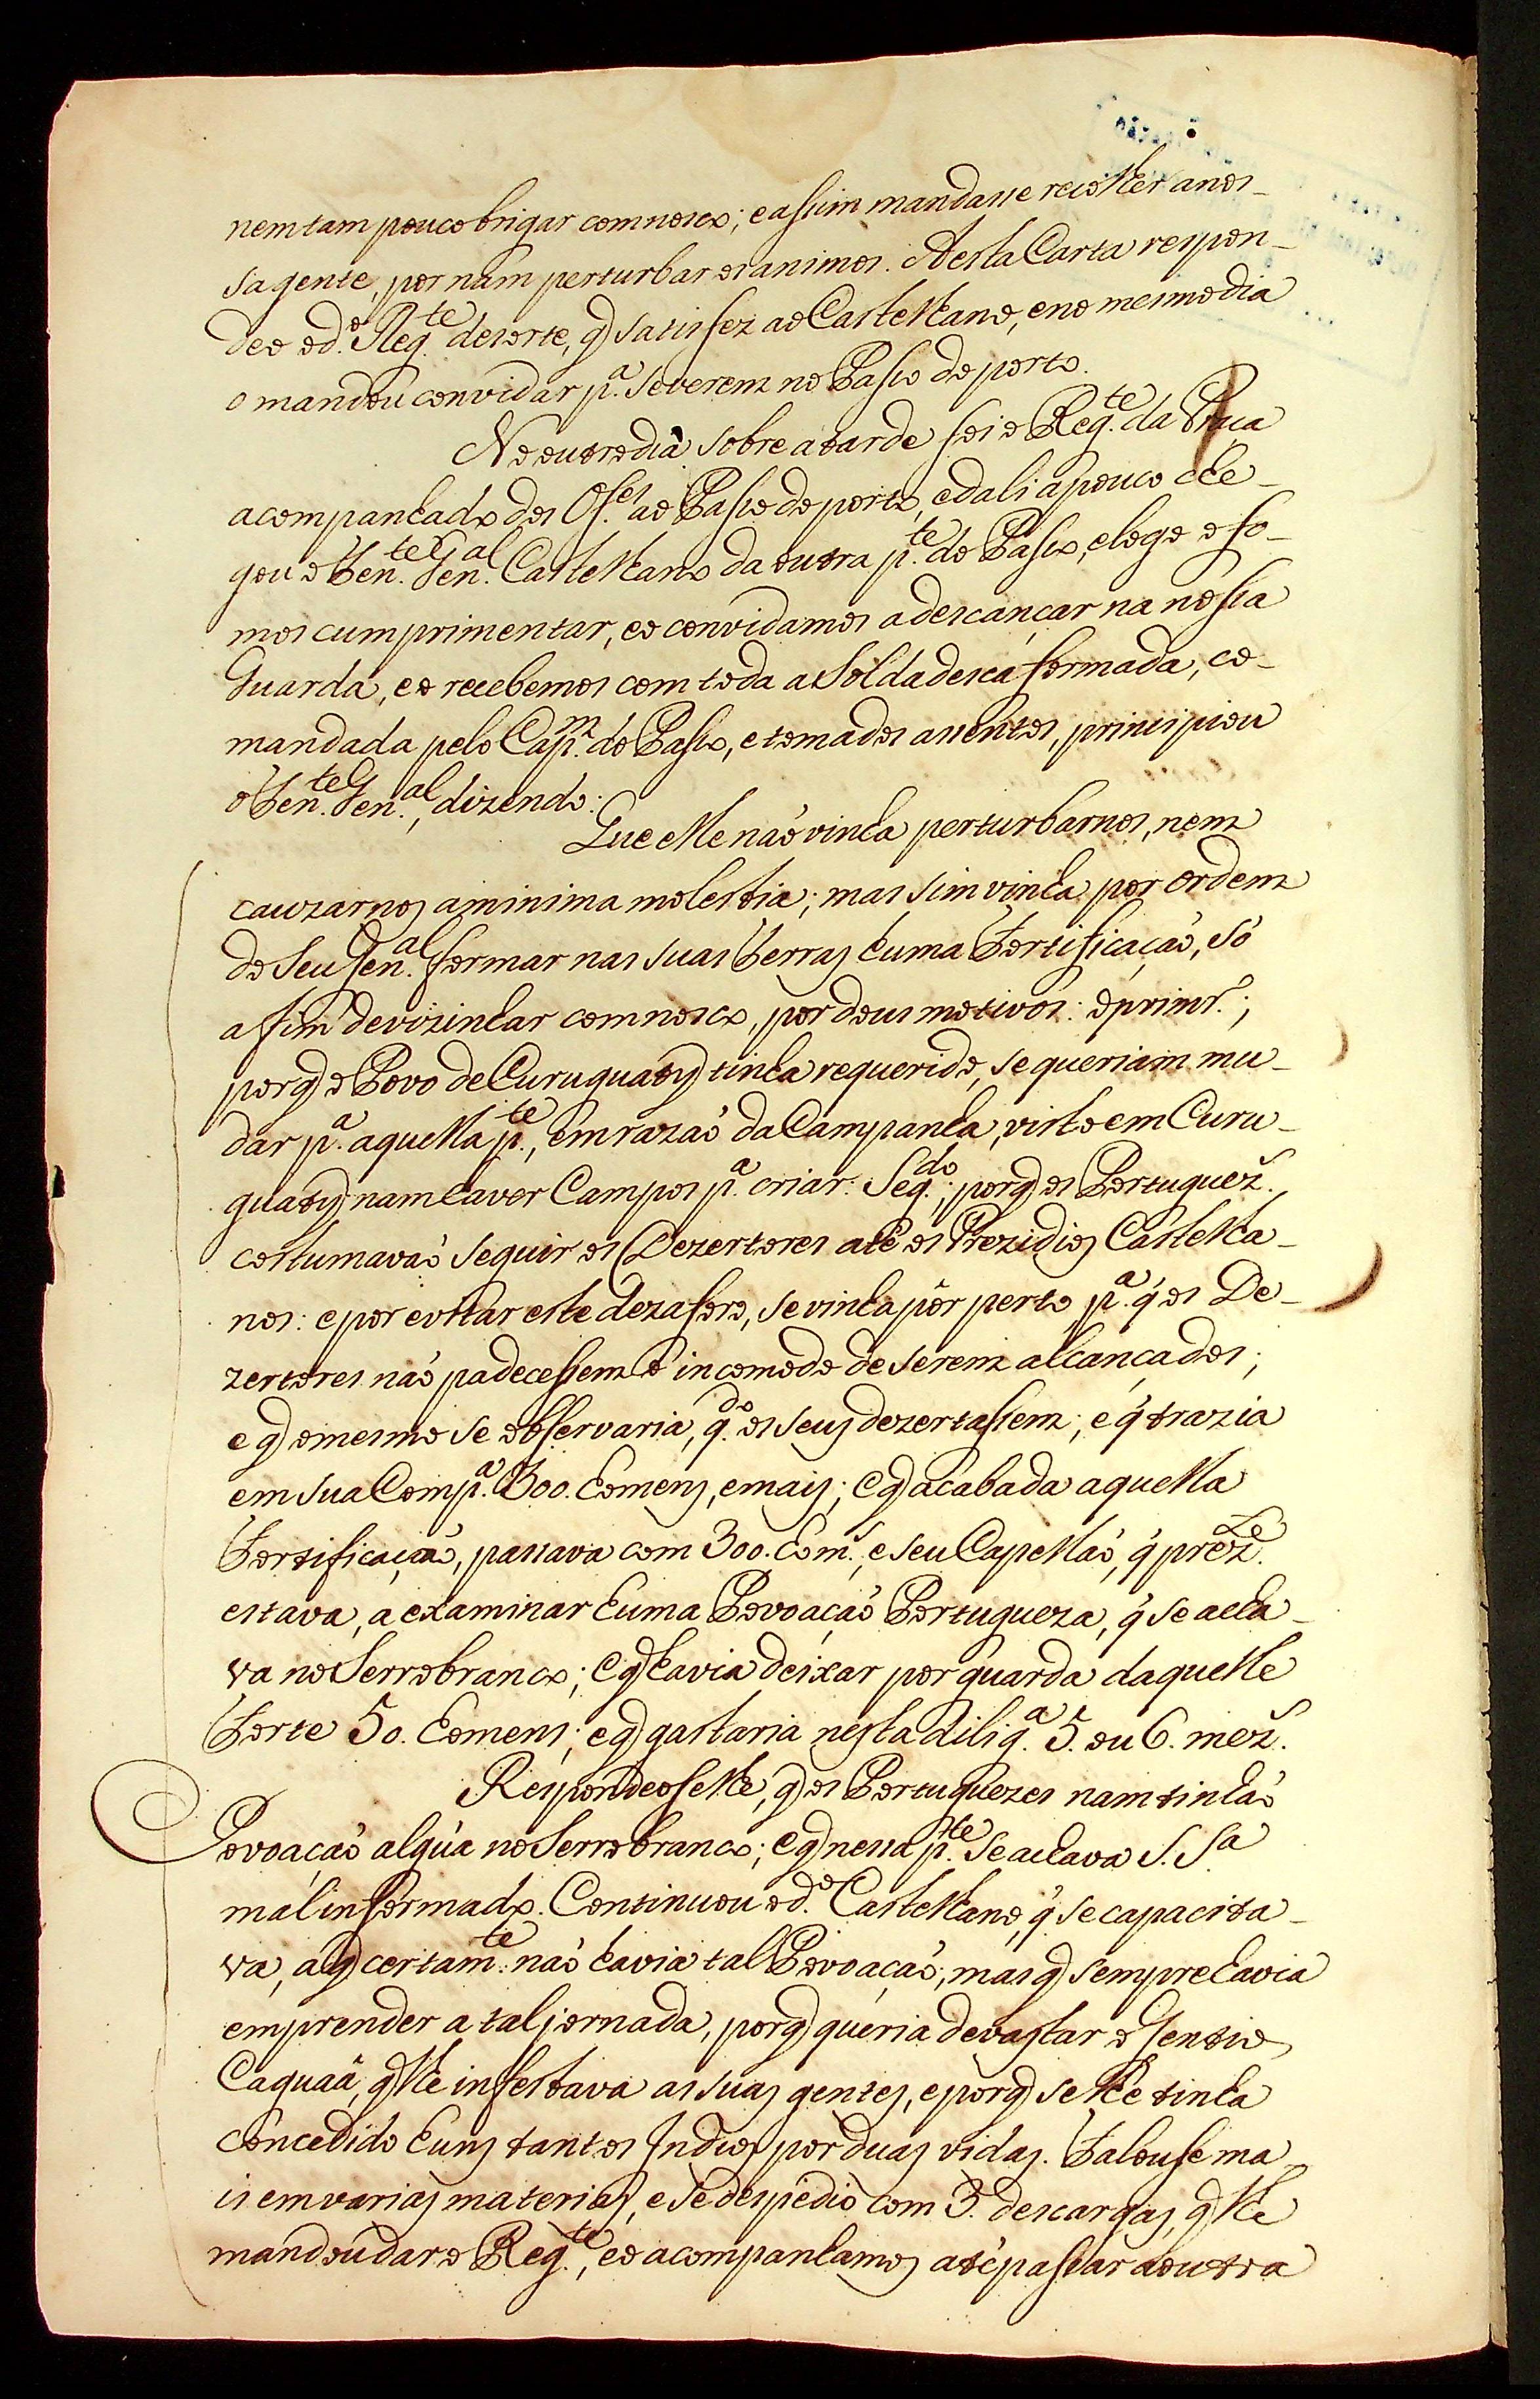 nem tam pouco brigar comnosco; e assim mandasse recolher a nos-
sa gente, por nam perturbar os animos. A esta Carta respon-
deo o d.º Reg.te desorte, q̃ satisfez ao Castelhano, e no mesmo dia
o mandou convidar p.ª se verem no Passo do porto.
No outro dia sobre a tarde foi o Reg.te da Praca
acompanhado dos Of.es ao Passo do porto, e dali a pouco che-
gou o Ten.te Gen.al Castelhano da outra p.te do Passo, e logo o fo-
mos cumprimentar, e o convidamos a descançar na nossa
Guarda, e o recebemos com toda a Soldadesca formada, co-
mandada pelo Cap.m do Passo, e tomados assentos, principiou
o Ten.te Gen.al, dizendo:
Que elle naõ vinha perturbarnos, nem
cauzarnos a minima molestia; mas sim vinha por ordem
do Seu Gen.al formar nas suas Terras huma Fortificaçaõ, só
a fim de vizinhar comnosco, por dous motivos: o prim.r;
porq̃ o Povo de Curuguaty tinha requerido, se queriam mu-
dar p.ª aquella p.te, em razaõ da Campanha, visto em Curu-
guaty nam haver Campos p.ª criar: Seg.do; porq̃ os Portuguez.
costumavaõ seguir os Dezertores até os Prezidios Castelha-
nos: e por evitar este dezaforo, se vinha pôr perto, p.ª q̃ os De-
zertores naõ padecessem o incomodo de serem alcançados;
e q̃ o mesmo se observaria, q.do os seus dezertassem; e q̃ trazia
em sua Comp.ª 300. homens, e mais; e q̃ acabada aquella
Fortificaçaõ, passava com 300. hom.s, e seu Capellaõ, q̃ prez.te
estava, a examinar huma Povoaçaõ Portugueza, q̃ se acha-
va no Serrobranco; e q̃ havia deixar por guarda daquelle
Forte 50. homens; e q̃ gastaria nesta dilig.ª 5. ou 6. mez.
Respondeoselhe, q̃ os Portuguezes nam tinhaõ
Povoaçaõ algũa no Serrobranco; e q̃ nessa p.te se achava S. S.ª
mal informado. Continuou o d.º Castelhano, q̃ se capacita-
va, a q̃ certam.te naõ havia tal Povoaçaõ; mas q̃ sempre havia
emprender a tal jornada, porq̃ queria devastar o Gentio
Caguaâ, q̃ lhe infestava as suas gentes, e porq̃ se lhe tinha
concedido huns tantos Indios por duas vidas. Falouse ma-
is em varias materias, e se despedio com 3. descargas, q̃ lhe
mandou dar o Reg.te, e o acompanhamos até passar a outra